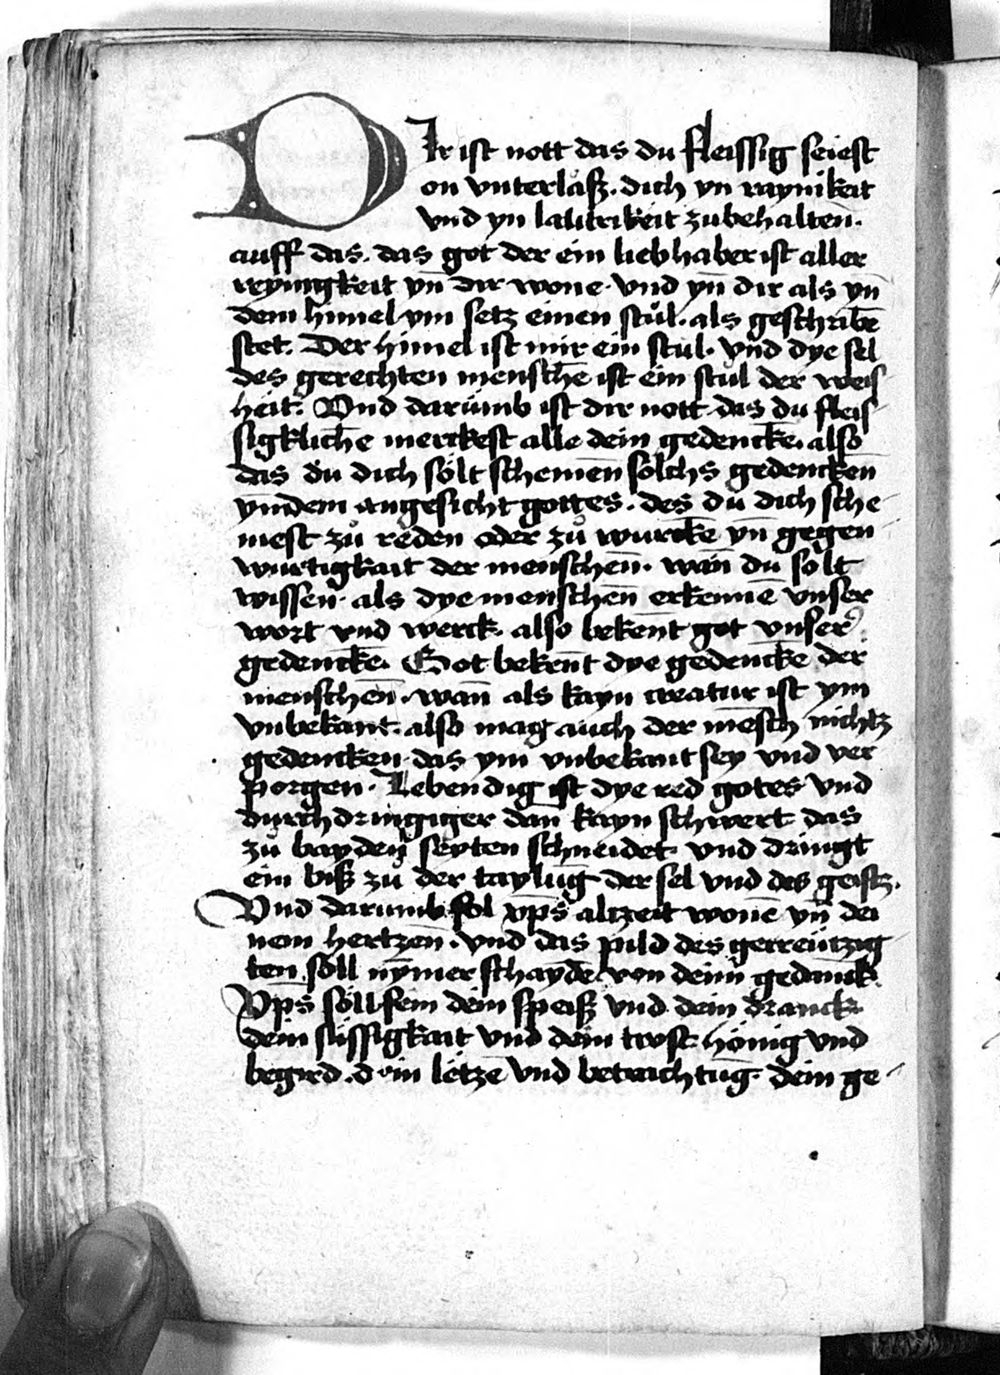 DIr ist nott das du fleissig seiest
on vnterlaß. dich yn raynikeit
vnd yn lautrikeit zubehalten.
auff das. das got der ein liebhaber ist aller
reynigkeit yn̄ dir wone. vnd yn̄ dir als yn̄
dem himel ym setz einen stůl. als geschribē
stet. Der himel ist mir ein stul. Vnd dye sel
des gerechten menschē ist ein stul der weis
heit. Vnd darumb ist dir nott das du fleis-
sigklichē merckest alle dein gedenckē. also
das du dich sölt schemen̄ sölchs gedencken̄
yn̄ dem angesicht gottes. des dů dich sche-
mest zů reden oder zů wurckē yn̄ gegen
wurtigkait der menschen̄. wan̄ du solt
wissen als dye menschen̄ erkennē vnser
wort vnd werck. also beken̄t got vnser
gedenckē. Got beken̄t dye gedenckē der
menschen̄. wan̄ als kayn creatur ist ym
vnbekant. also mag auch der mēsch nichtz
gedencken das ym vnbekant sey vnd ver
porgen. Lebendig ist dye red gotes vnd
durchdringiger dan̄ kayn schwert das
zů bayden̄ seyten schneidet vnd dringt
ein biß zu der taylūg der sel vnd des geistz.
Vnd darumb sol xp̄s altzeit wonē yn̄ dei
nem hertzen̄. vnd das pild des gecreützig
ten söll nymer schaydē von deim gedanck.
Xp̄s söll sein dein speiß vnd dein dranck
dein süssigkait vnd dein trost hönig vnd
begird. dein letzē vnd betrachtūg. dein ge-